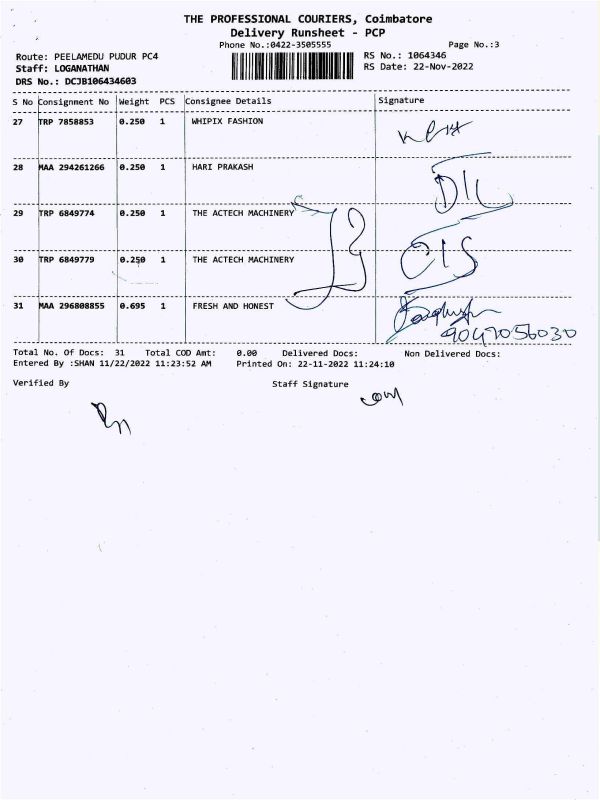 THE PROFESSIONAL COURIERS, Coimbatore
Delivery Runsheet - PCP
Phone No.:0422-3505555 Page No.:3
Route: PEELAMEDU PUDUR PC4 RS No.: 1064346
Staff: LOGANATHAN RS Date: 22-Nov-2022
DRS No.: DCJB106434603
S No Consignment No Weight PCS Consignee Details Signature
27 TRP 7858853 0.250 1 WHIPIX FASHION
28 MAA 294261266 0.250 1 HARI PRAKASH
29 TRP 6849774 0.250 1 THE ACTECH MACHINERY
30 TRP 6849779 0.250 1 THE ACTECH MACHINERY
31 MAA 296808855 0.695 1 FRESH AND HONEST
9047056030
Total No. Of Docs: 31 Total COD Amt: 0.00 Delivered Docs: Non Delivered Docs:
Entered By :SHAN 11/22/2022 11:23:52 AM Printed On: 22-11-2022 11:24:10
Verified By Staff Signature